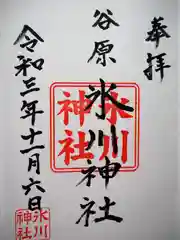 奉拝
谷原
氷川神社
氷川
神社
令和三年十一月六日
氷川
神社